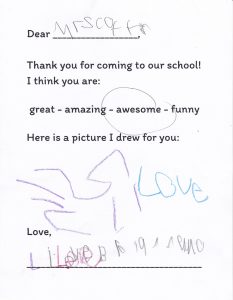 Dear Mr Scott,
Thank you for coming to our school!
I think you are:
great - amazing - awesome - funny
Here is a picture I drew for you:
Love
Love,